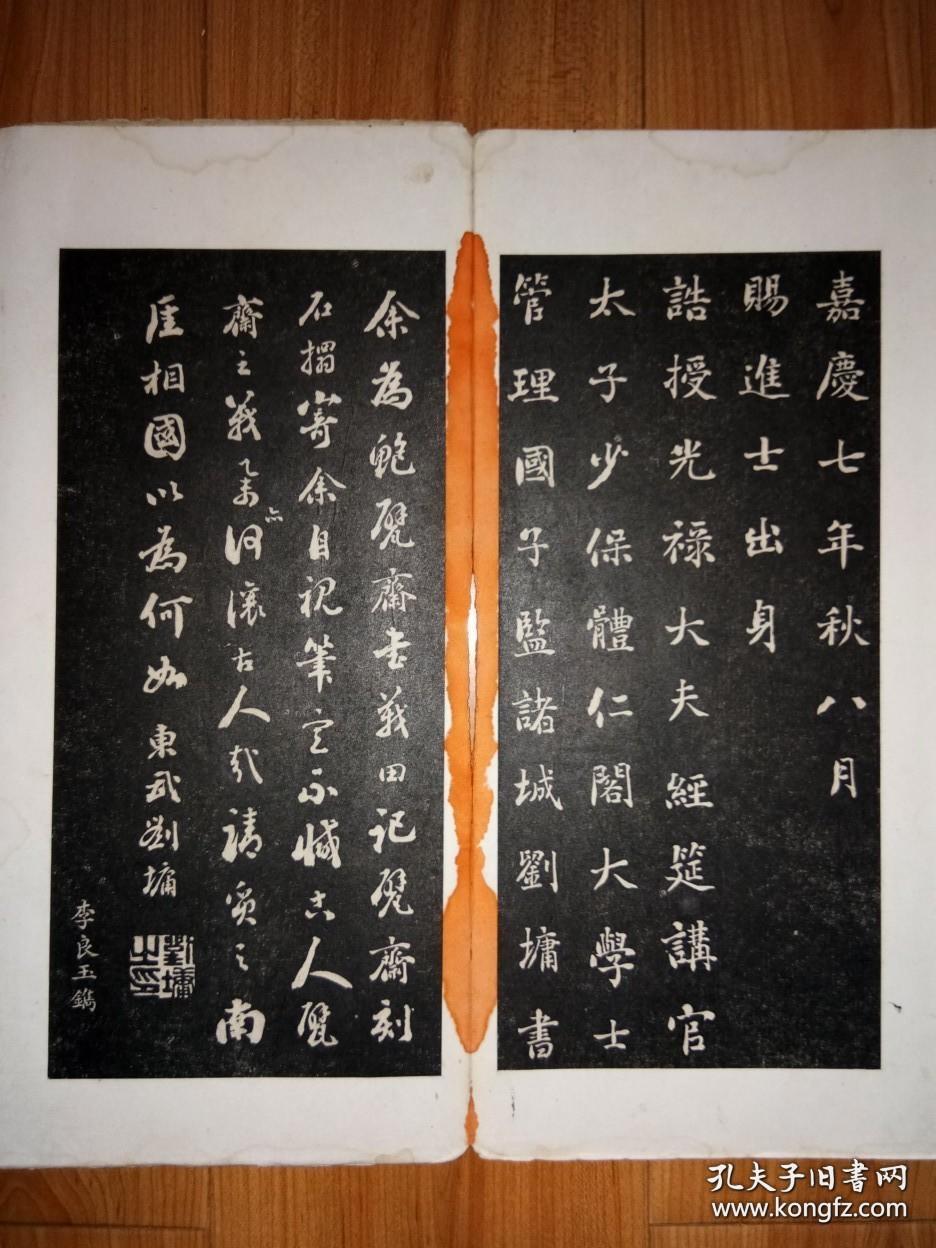 嘉慶七年秋八月
賜進士出身
誥授光禄大夫經筵講官
太子少保體仁閣大學士
管理國子監諸城劉墉書
余為鮑甓齋書義田記甓齋刻
石搨寄余自視筆意不慽古人甓
齋之義何讓古人哉請質之南
厓相國以為何如東武劉墉
劉墉之印
李良玉鐫
孔夫子旧书网
www.kongfz.com